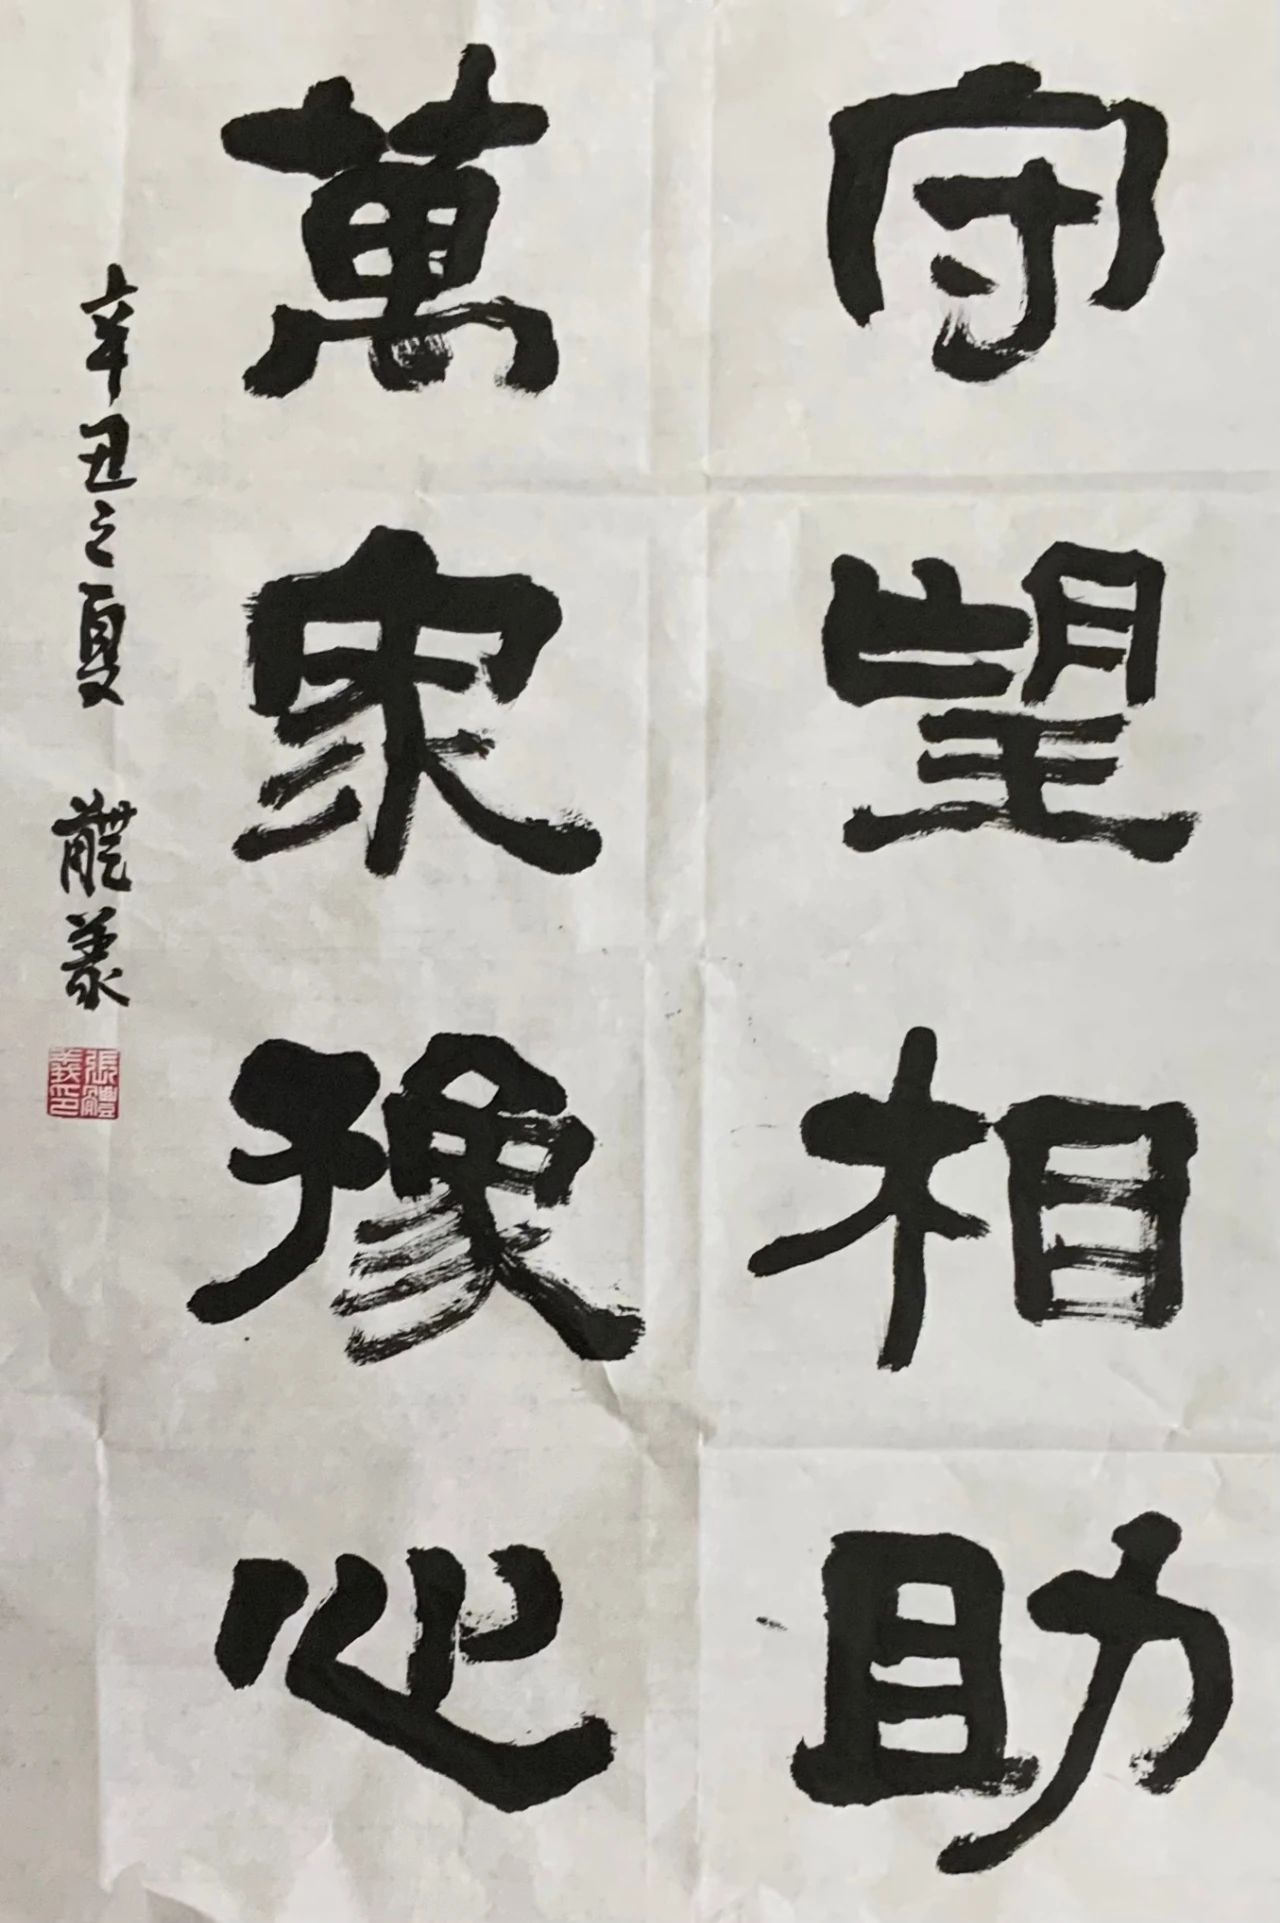 守望相助
萬衆豫心
辛丑之夏 體義
張體義印